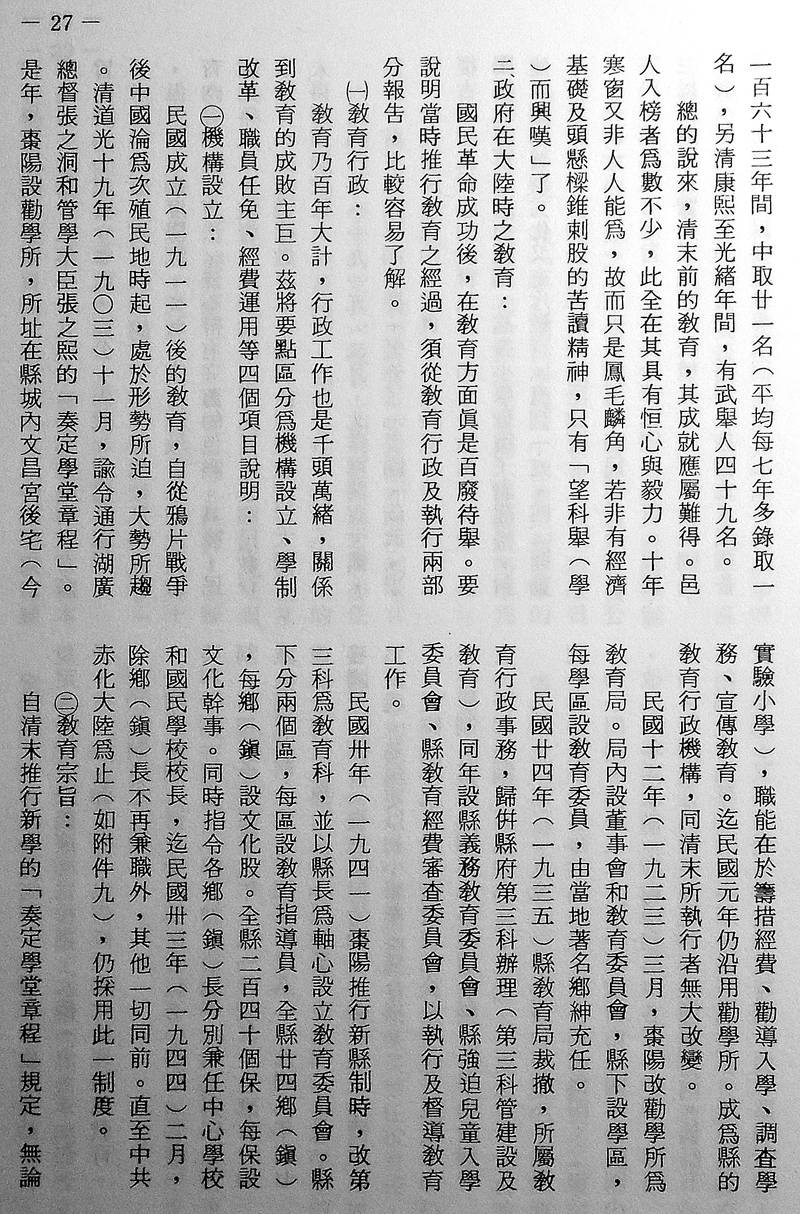 — 27 —
一百六十三年間，中取廿一名（平均每七年多錄取一
名），另清康熙至光緒年間，有武舉人四十九名。
總的說來，清末前的教育，其成就應屬難得。邑
人入榜者爲數不少，此全在其具有恒心與毅力。十年
寒窗又非人人能爲，故而只是鳳毛麟角，若非有經濟
基礎及頭懸樑錐刺股的苦讀精神，只有「望科舉（學
）而興嘆」了。
二、政府在大陸時之教育：
國民革命成功後，在教育方面眞是百廢待舉。要
說明當時推行教育之經過，須從教育行政及執行兩部
分報告，比較容易了解。
㈠教育行政：
教育乃百年大計，行政工作也是千頭萬緒，關係
到教育的成敗主巨。茲將要點區分爲機構設立、學制
改革、職員任免、經費運用等四個項目說明：
㊀機構設立：
民國成立（一九一一）後的教育，自從鴉片戰爭
後中國淪爲次殖民地時起，處於形勢所迫，大勢所趨
。清道光十九年（一九〇三）十一月，諭令通行湖廣
總督張之洞和管學大臣張之熙的「奏定學堂章程」。
是年，棗陽設勸學所，所址在縣城內文昌宮後宅（今
實驗小學），職能在於籌措經費、勸導入學、調查學
務、宣傳教育。迄民國元年仍沿用勸學所。成爲縣的
教育行政機構，同清末所執行者無大改變。
民國十二年（一九二三）三月，棗陽改勸學所爲
教育局。局內設董事會和教育委員會，縣下設學區，
每學區設教育委員，由當地著名鄉紳充任。
民國廿四年（一九三五）縣教育局裁撤，所屬教
育行政事務，歸併縣府第三科辦理（第三科管建設及
教育），同年設縣義務教育委員會、縣強迫兒童入學
委員會、縣教育經費審查委員會，以執行及督導教育
工作。
民國卅年（一九四一）棗陽推行新縣制時，改第
三科爲教育科，並以縣長爲軸心設立教育委員會。縣
下分兩個區，每區設教育指導員，全縣廿四鄉（鎮）
，每鄉（鎮）設文化股。全縣二百四十個保，每保設
文化幹事。同時指令各鄉（鎮）長分別兼任中心學校
和國民學校校長，迄民國卅三年（一九四四）二月，
除鄉（鎮）長不再兼職外，其他一切同前。直至中共
赤化大陸爲止（如附件九），仍採用此一制度。
㊁教育宗旨：
自清末推行新學的「奏定學堂章程」規定，無論